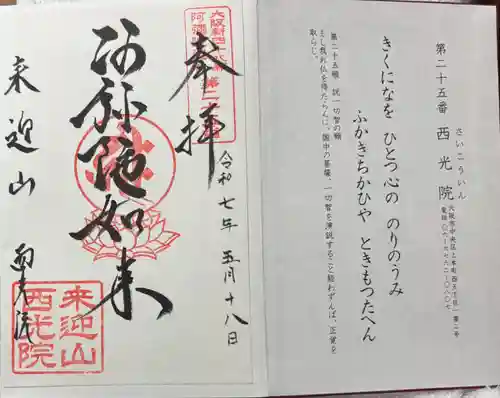 第二十五番 西光院
さいこういん
大阪市中央区上本町西五丁目一番二号
きくになを ひとつ心の のりのうみ
ふかきちかひや ときもつたへん
第二十五願 説一切智の願
もし我れ仏を得たらんに、国中の菩薩、一切智を演説すること能わずんば、正覚を
取らじ。
奉拝
令和七年 五月十八日
阿弥陀如来
来迎山
西光院
来迎山
西光院